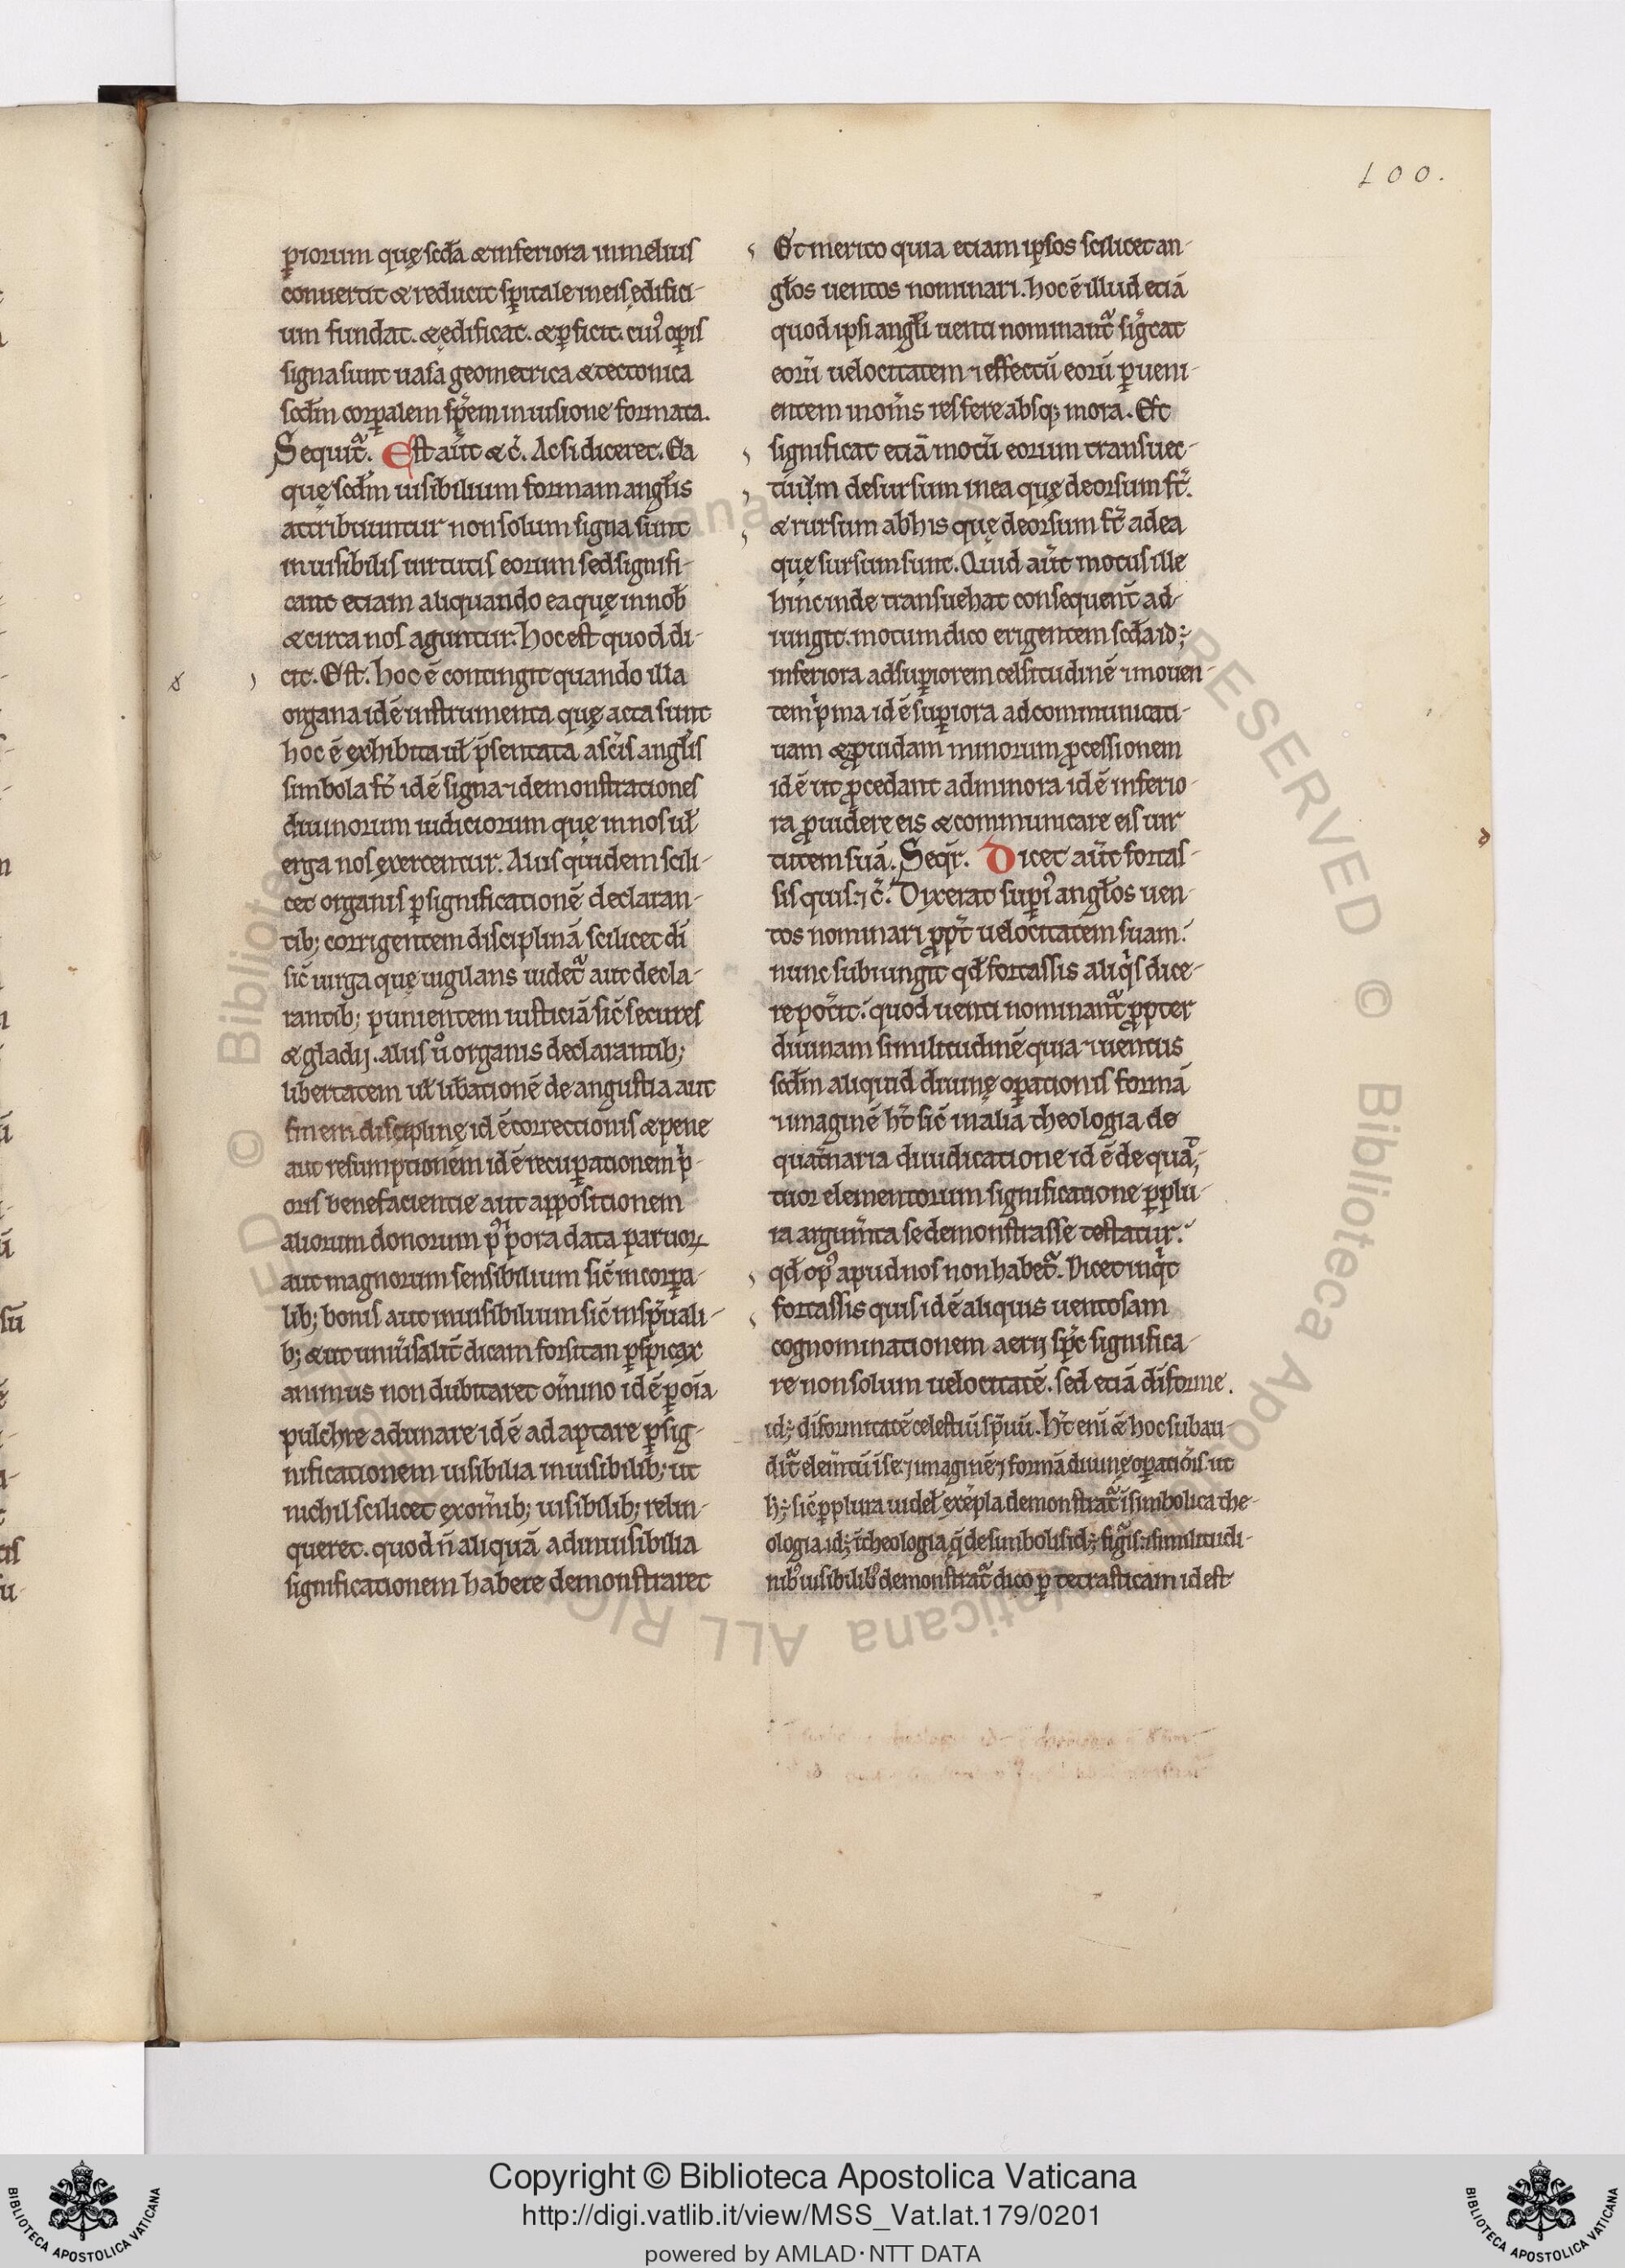 100.
ꝑiorum quę scd̄a & inferiora in melius
conuertit & reducit sp̄itale in eis ędifici-
um fundat. & ędificat. & ꝑficit. cui᷒ oꝑis
signa sunt uasa geometrica & tectonica
scd̄m corꝑalem sp̄em in uisione formata.
Sequit᷑. Est aut̄ & c̄. Ac si diceret. Ea
quę scd̄m uisibilium formam angl̄is
attribuuntur non solum signa sunt
inuisibilis uirtutis eorum sed signifi-
cant etiam aliquando ea quę in nob̄
& circa nos aguntur. hoc est quod di-
cit. Est. hoc ē contingit quando illa
organa id ē instrumenta quę acta sunt
hoc ē exhibita ul̄ p̄sentata a sc̄is angl̄is
simbola st̄ id ē signa ⁊ demonstrationes
diuinorum iudiciorum quę in nos ul̄
erga nos exercentur. Aliis quidem scili-
cet organis ꝑ significationē declaran-
tib; corrigentem disciplinā scilicet di
sic̄ uirga quę uigilans uidet᷑ aut decla-
rantib; punientem iusticiā sic̄ secures
& gladij. aliis ů organis declarantib;
libertatem ul̄ lib̄ationē de angustia aut
finem disciplinę id ē correctionis & pene
aut resumptionem id ē recuꝑationem p̄-
oris benefacientie aut appositionem
aliorum donorum p᷒ pora data paruoꝝ
aut magnorum sensibilium sic̄ in corꝑa-
lib; bonis aut inuisibilium sic̄ in sp̄uali-
b; & ut uniu̾salit̄ dicam forsitan ꝑspicax
animus non dubitaret om̄ino id ē ꝑ om̄ia
pulchre adunare id ē adaptare ꝑ sig-
nificationem uisibilia inuisibilib; ut
nichil scilicet ex om̄ib; uisibilib; relin-
queret. quod n̄ aliquā ad inuisibilia
significationem habere demonstraret
Et merito quia etiam ipsos scilicet an-
gl̄os uentos nominari. hoc ē illud etiā
quod ipsi angl̄i uenti nominant᷑ sig̾cat
eorū uelocitatem ⁊ effectū eorū ꝑueni-
entem in om̄s res fere absq; mora. Est
significat etiā motū eorum transuec-
tiuū desursum in ea quę deorsum st̄.
& rursum ab his quę deorsum st̄ ad ea
quę sursum sunt. Quid aut̄ motus ille
hinc inde transuehat consequent̄ ad-
iungit. motum dico erigentem scd̄a id ÷
inferiora ad suꝑiorem celsitudinē ⁊ mouen-
tem p̾ma id ē suꝑiora ad communicati-
uam & ꝓuidam minorum ꝓcessionem
id ē ut ꝓcedant ad minora id ē inferio-
ra ꝓuidere eis & communicare eis uir
tutem suā. Seqr̄. Dicet aut̄ fortas-
sis quis. ⁊ c̄. Dixerat suꝑi᷒ angl̄os uen-
tos nominari ꝓpt̄ uelocitatem suam.
nunc subiungit qd̄ fortassis aliq̾s dice-
re pot̾it. quod uenti nominant᷑ ꝓpter
diuinam similitudinē quia ⁊ uentus
scd̄m aliquid diuinę oꝑationis formā
⁊ imaginē h̄t sic̄ in alia theologia de
quat̾naria diiudicatione id ē de qua-
tuor elementorum significatione ꝑ plu-
ra argum̄ta se demonstrasse testatur.
qd̄ op᷒ apud nos non habet᷑. Dicet inq̾t
fortassis quis id ē aliquis uentosam
cognominationem aerij sp̄c significa-
re non solum uelocitatē. sed etiā di̾forme.
id ÷ di̾formitatē celestiū sp̄uū. h̄t eni̅ ē hoc subau-
dit᷑ elem̄tū ī se ⁊ imaginē ⁊ formā diuinę oꝑatiōis. ut
sic̄ ꝑ plura uidel̄ exēpla demonstrat᷑ ī simbolica the-
ologia id ÷ ī theologia q̄ de simbolis id ÷ fig̾is ⁊ similitudi-
nib᷒ uisibilib᷒ demonstrat᷑ dico ꝑ tetrasticam id est
Copyright © Biblioteca Apostolica Vaticana
http://digi.vatlib.it/view/MSS_Vat.lat.179/0201
powered by AMLAD·NTT DATA
BIBLIOTECA APOSTOLICA VATICANA
BIBLIOTECA APOSTOLICA VATICANA